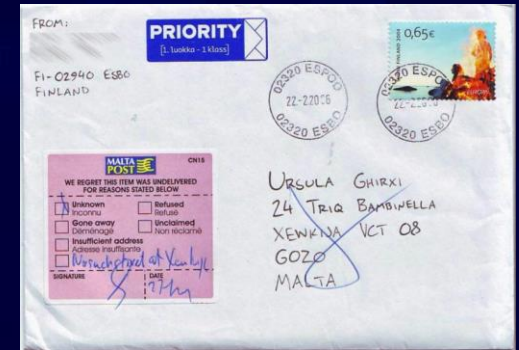 FROM:
FI-02940 ESBO
FINLAND
PRIORITY
[1. luokka - 1 klass]
0,65€
FINLAND 2004
EUROPA
02320 ESPOO
22-2.2006
02320 ESBO
02320 ESPOO
22-2.2006
02320 ESBO
MALTA
POST
CN15
WE REGRET THIS ITEM WAS UNDELIVERED
FOR REASONS STATED BELOW
Unknown
Inconnu
Refused
Refusé
Gone away
Déménagé
Unclaimed
Non réclamé
Insufficient address
Adresse insuffisante
No such street at
SIGNATURE
DATE
URSULA GHIRXI
24 TRIQ BAMBINELLA
XEWKNA VCT 08
GOZO
MALTA